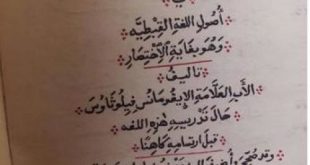 فى
أصُول اللغة القبطيَّه
وَهُوَ بغَايَة الاِخْتِصَار
تأليف
الأب العَلَّامَة الإيغومانس فيلوثاوس
حَالَ تَدْرِيسِهِ هَذِهِ اللغه
قَبلَ ارتسَامِهِ كَاهِنًا